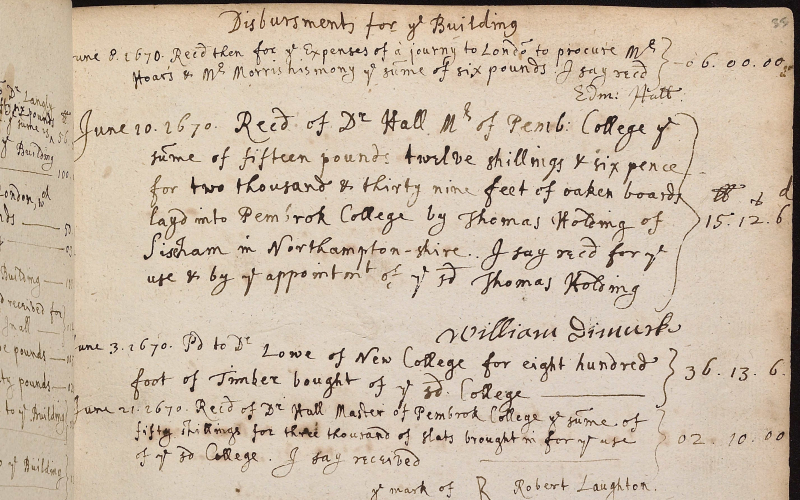 Disbursments for ye Building
35
June 8. 1670. Recd then for ye Expenses of a journy to London to procure Mr
Hoars & Mr Morris his mony ye sume of six pounds I say recd 06. 00. 00
Edm: Hall.
June 10. 1670. Recd of Dr Hall Mr of Pemb: College ye
sume of fifteen pounds twelve shillings & six pence
for two thousand & thirty nine feet of oaken boards
layd into Pembrok College by Thomas Holding of 15. 12. 6
Siseham in Northampton-shire. I say recd for ye
use & by ye appointmt of ye sd Thomas Holding
William Dimurk
June 3. 1670. Pd to Dr Lowe of New College for eight hundred
foot of Timber bought of ye sd. College 36. 13. 6.
June 21. 1670. Recd of Dr Hall Master of Pembrok College ye sume of
fifty shillings for three thousand of slats brought in for ye use 02. 10. 00
of ye sd College. I say received
ye mark of R Robert Laughton.
Dr Langly
ye Building
London,
Building
received for
pounds
pounds
to ye Building
ye Building